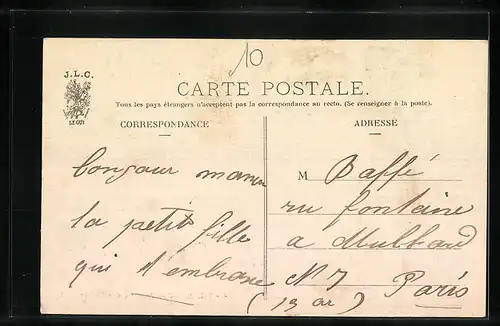 10
J.L.C.
LE GUI
CARTE POSTALE.
Tous les pays étrangers n'acceptent pas la correspondance au recto. (Se renseigner à la poste).
CORRESPONDANCE
ADRESSE
bonjour maman
la petite fille
qui t'embrasse
M Baffé
ru fontaine
a Mulbard
N 7 Paris
(13 ar)